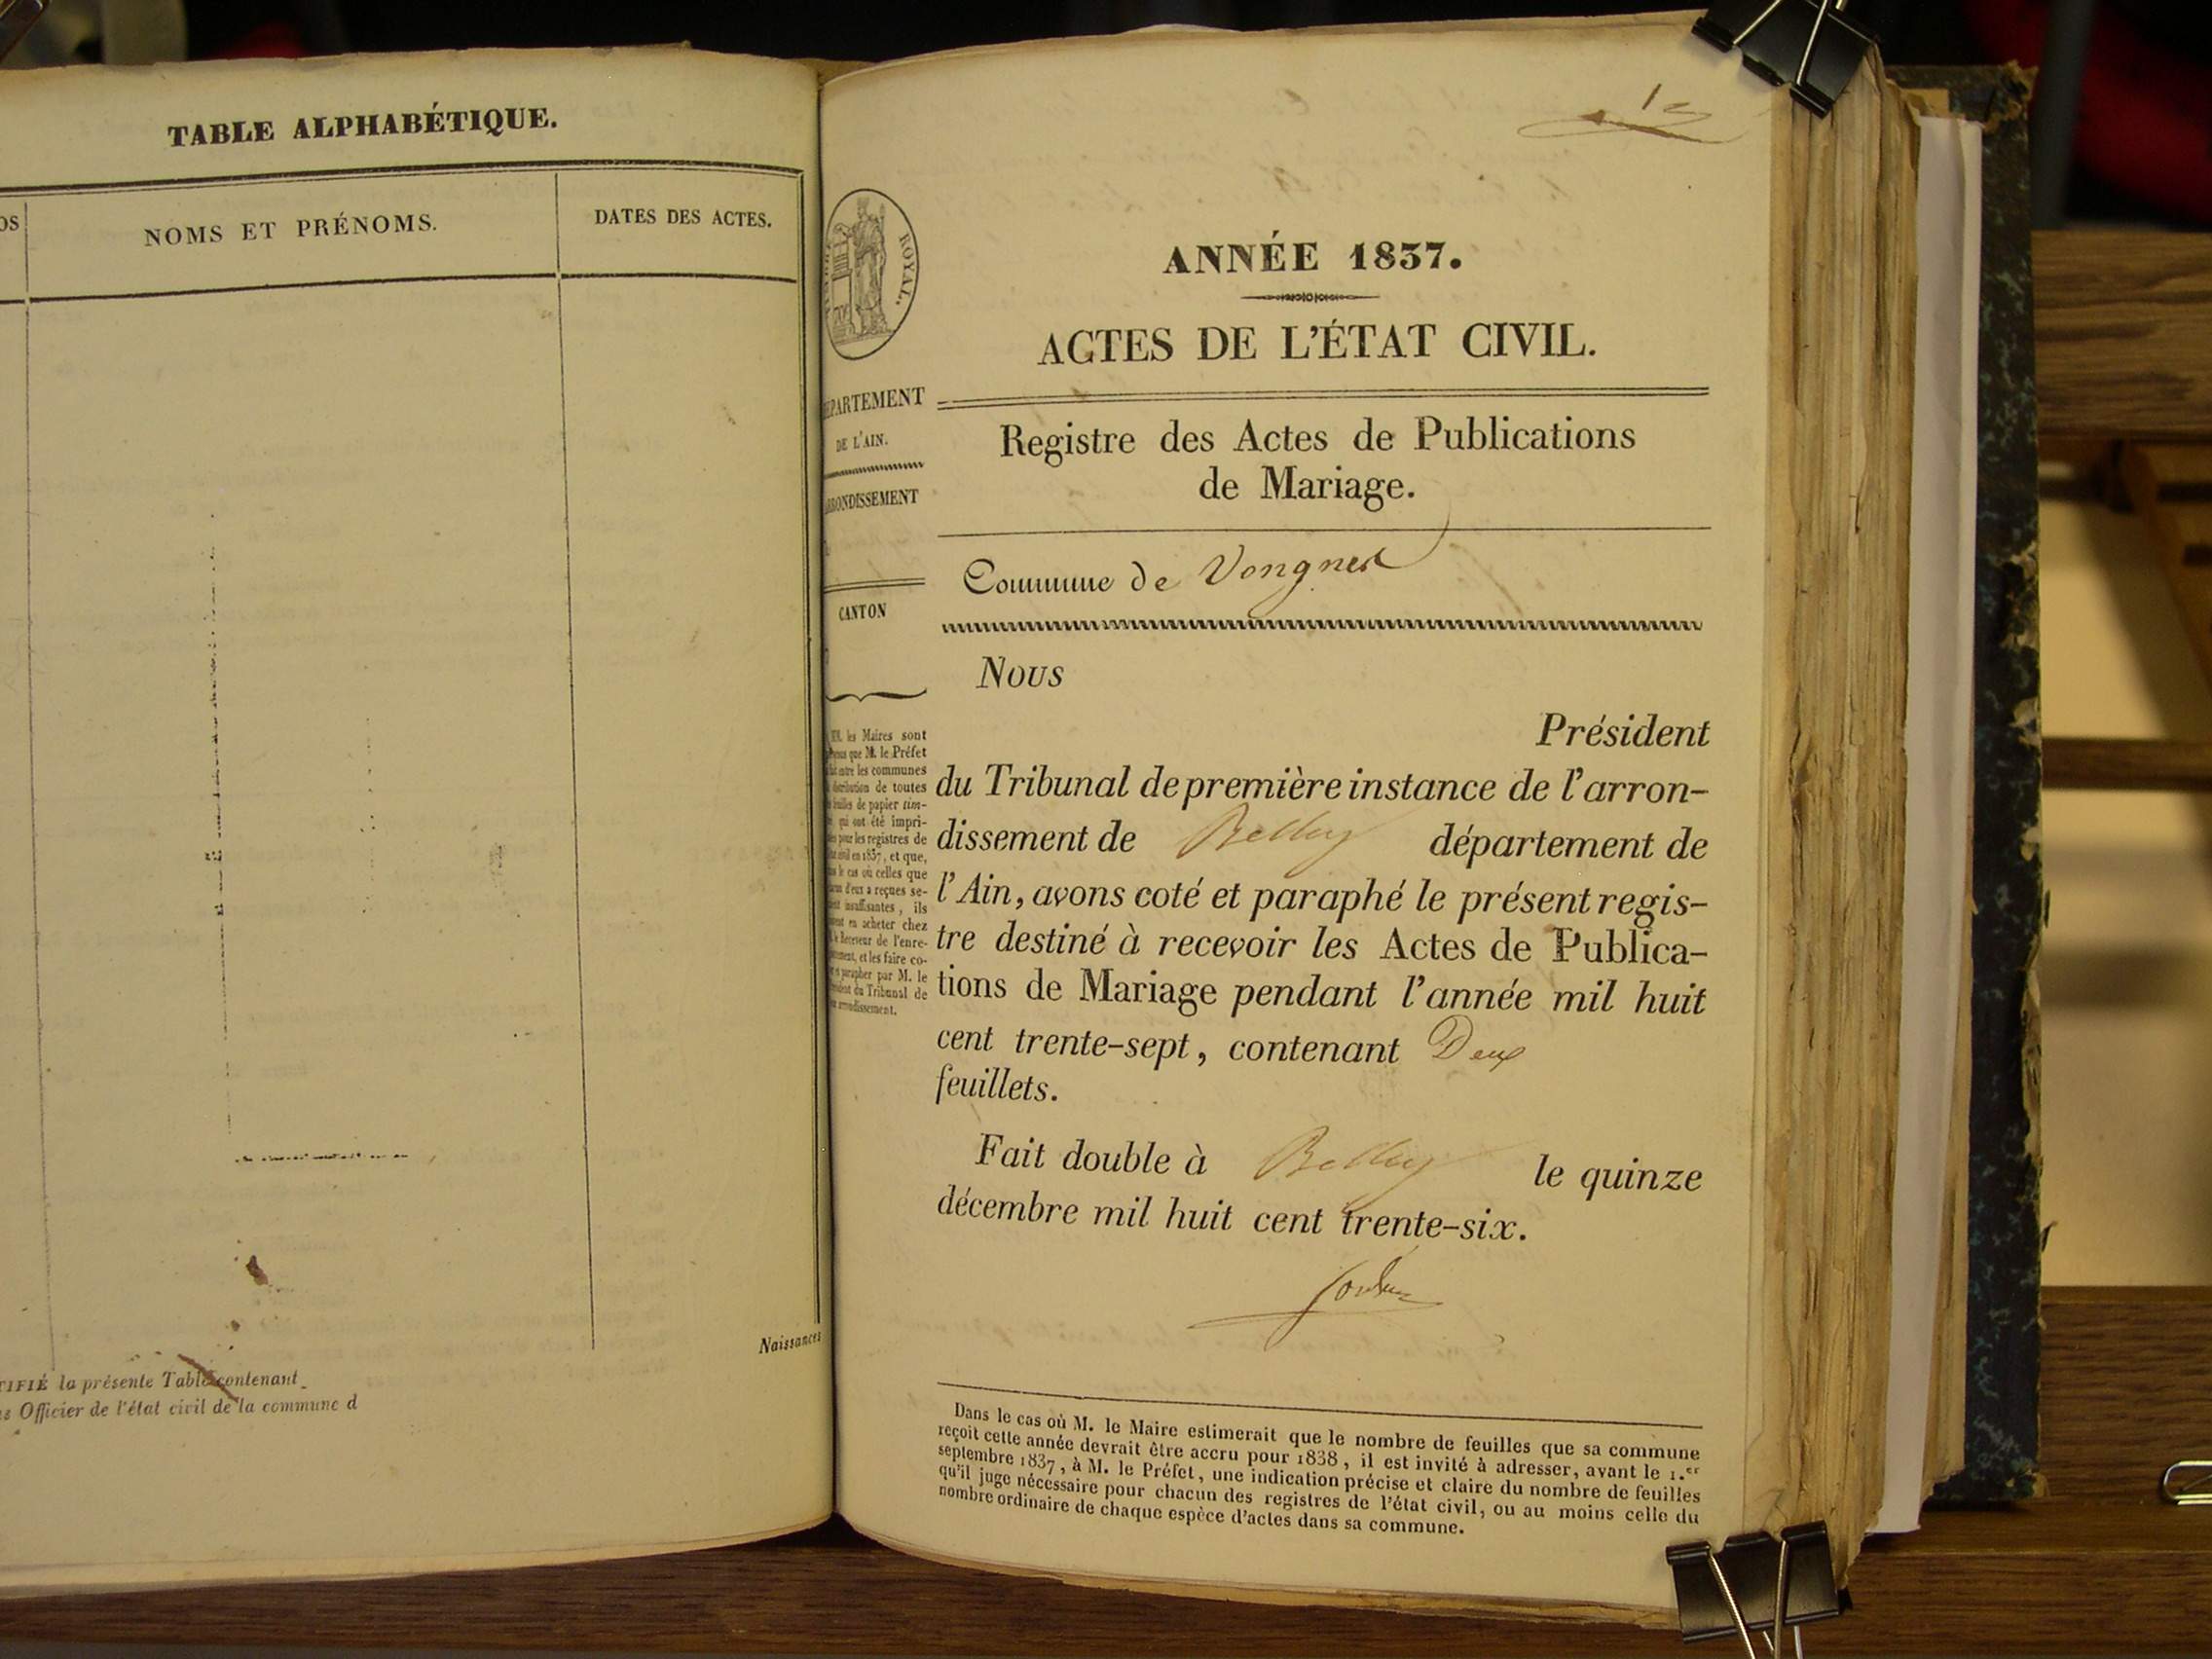 TABLE ALPHABÉTIQUE.
OS
NOMS ET PRÉNOMS.
DATES DES ACTES.
Naissances
TIFIÉ la présente Table contenant
Officier de l'état civil de la commune d
ROYAL.
EPARTEMENT
DE L'AIN.
RRONDISSEMENT
CANTON
MM. les Maires sont
que M. le Préfet
entre les communes
distribution de toutes
feuilles de papier tim-
qui ont été impri-
pour les registres de
civil en 1837, et que,
le cas où celles que
d'eux a reçues se-
insuffisantes, ils
en acheter chez
le Receveur de l'enre-
et les faire co-
parapher par M. le
du Tribunal de
arrondissement.
ANNÉE 1837.
ACTES DE L'ÉTAT CIVIL.
Registre des Actes de Publications
de Mariage.
Commune de Vongnes
Nous
Président
du Tribunal de première instance de l'arron-
dissement de Belley département de
l'Ain, avons coté et paraphé le présent regis-
tre destiné à recevoir les Actes de Publica-
tions de Mariage pendant l'année mil huit
cent trente-sept, contenant Deux
feuillets.
Fait double à Belley le quinze
décembre mil huit cent trente-six.
Dans le cas où M. le Maire estimerait que le nombre de feuilles que sa commune
reçoit cette année devrait être accru pour 1838, il est invité à adresser, avant le 1.er
septembre 1837, à M. le Préfet, une indication précise et claire du nombre de feuilles
qu'il juge nécessaire pour chacun des registres de l'état civil, ou au moins celle du
nombre ordinaire de chaque espèce d'actes dans sa commune.